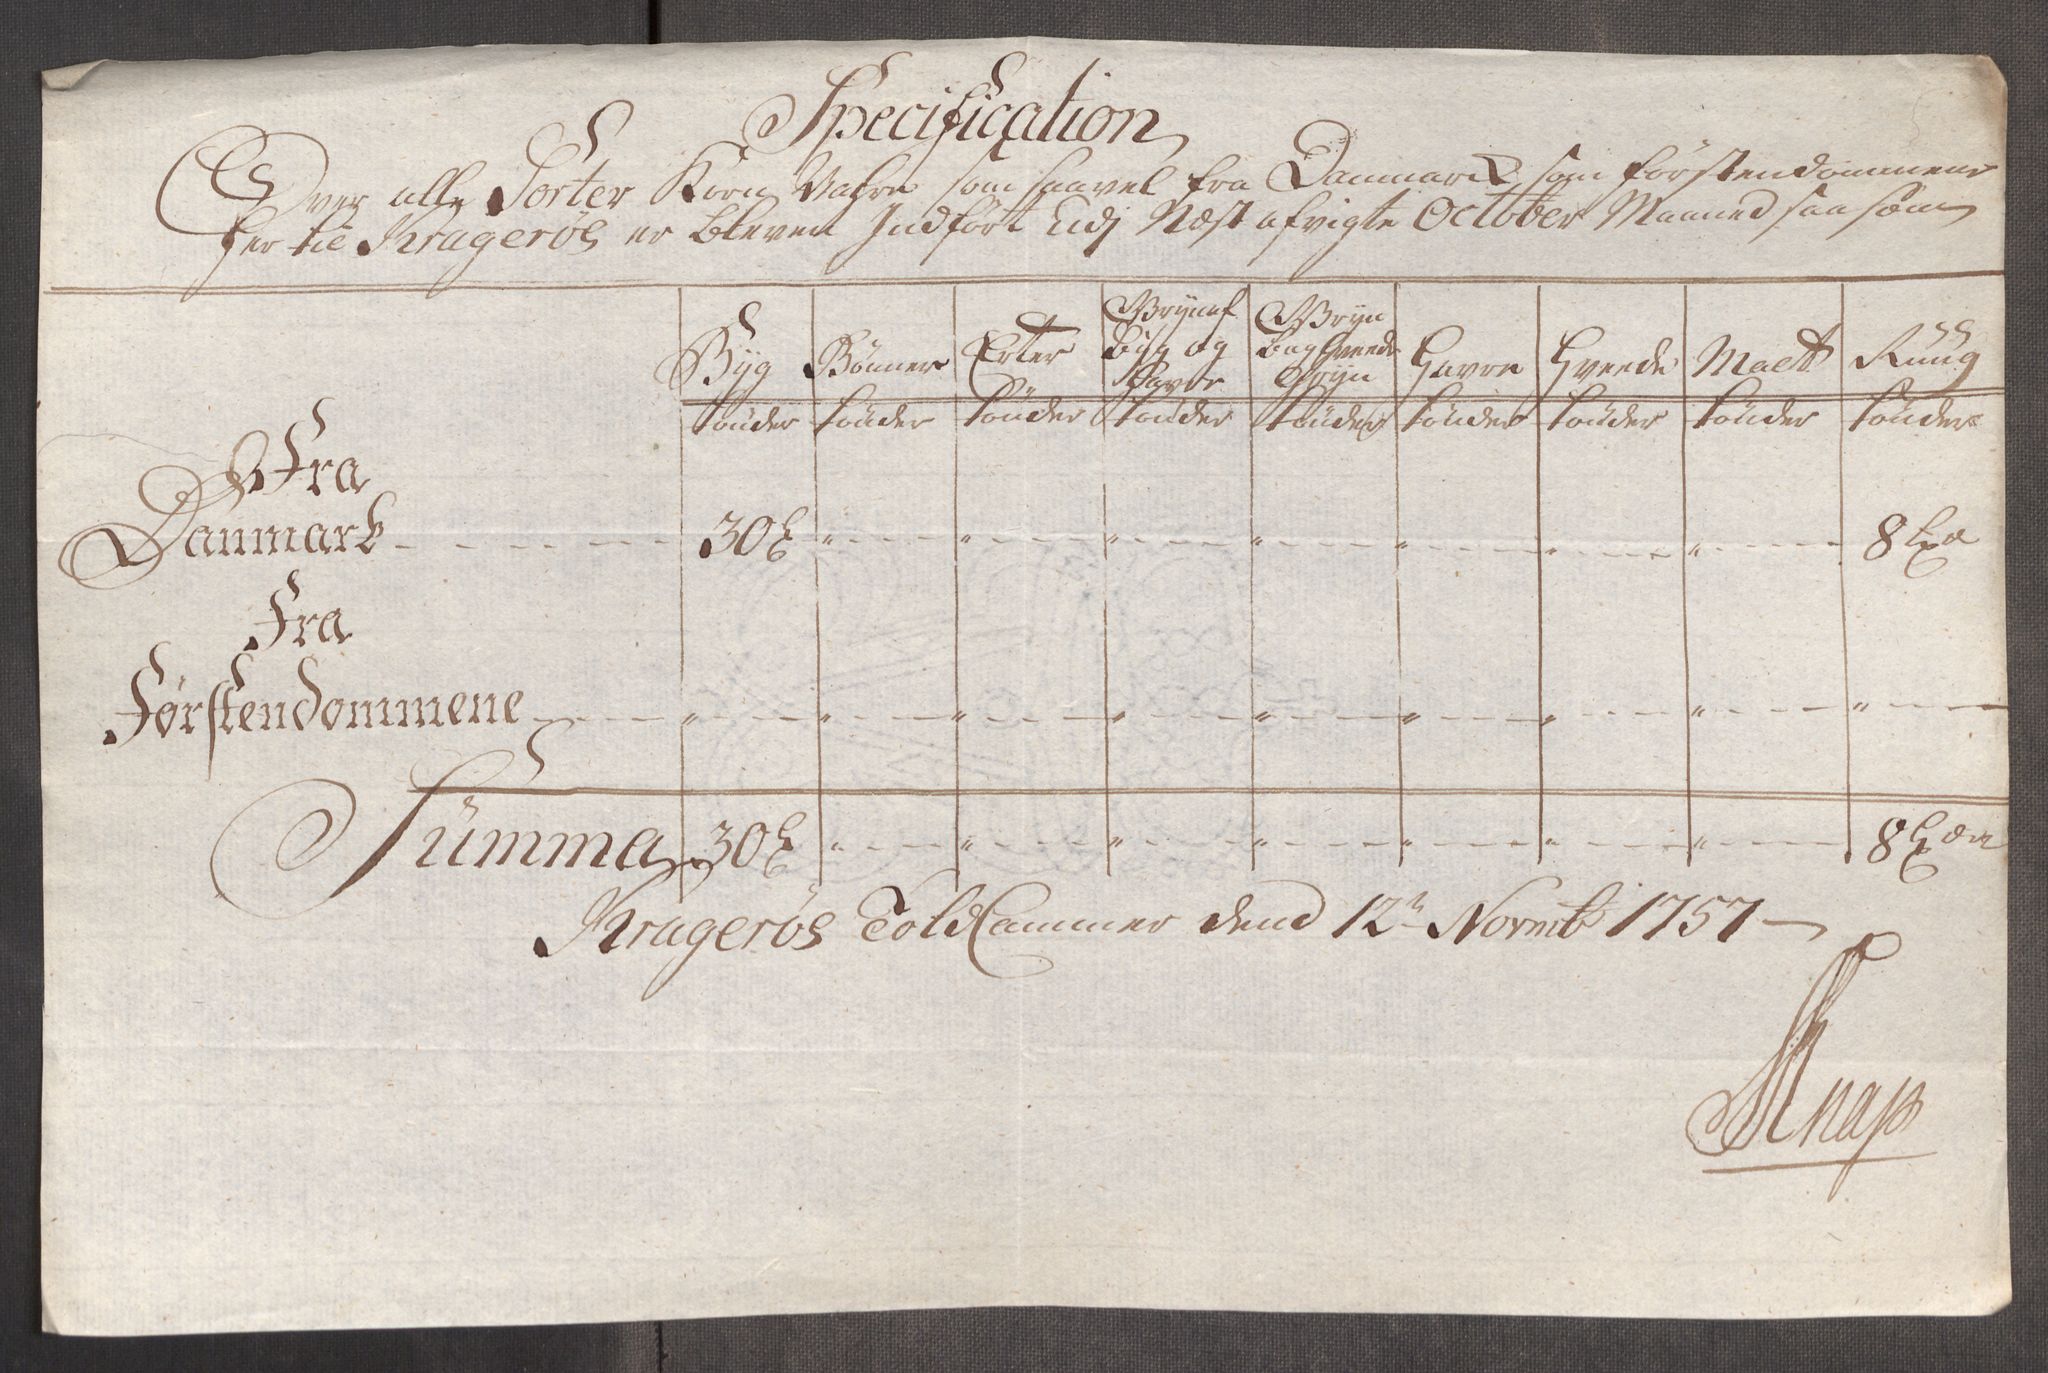 Specification
Over alle Sorter Korn Vahre som saavel fra Danmarck som förstendommene
her til Krageröe er bleven Indfört udj Næst afvigte October Maaned saa som
Byg Bönner Erter Gryn af Byg og Havre Gryn Bog hveede Gryn Havre Hveede Malt Ruug
tönder tönder tönder tönder tönder tönder tönder tönder tönder
Fra
Danmark - - - - - - 30 - - - - - - - 8
Fra
Førstendommene - - - - - - - - -
Summa 30 - - - - - - - 8
Kragerös Told Cammer dend 12te Novemb 1757
Knap